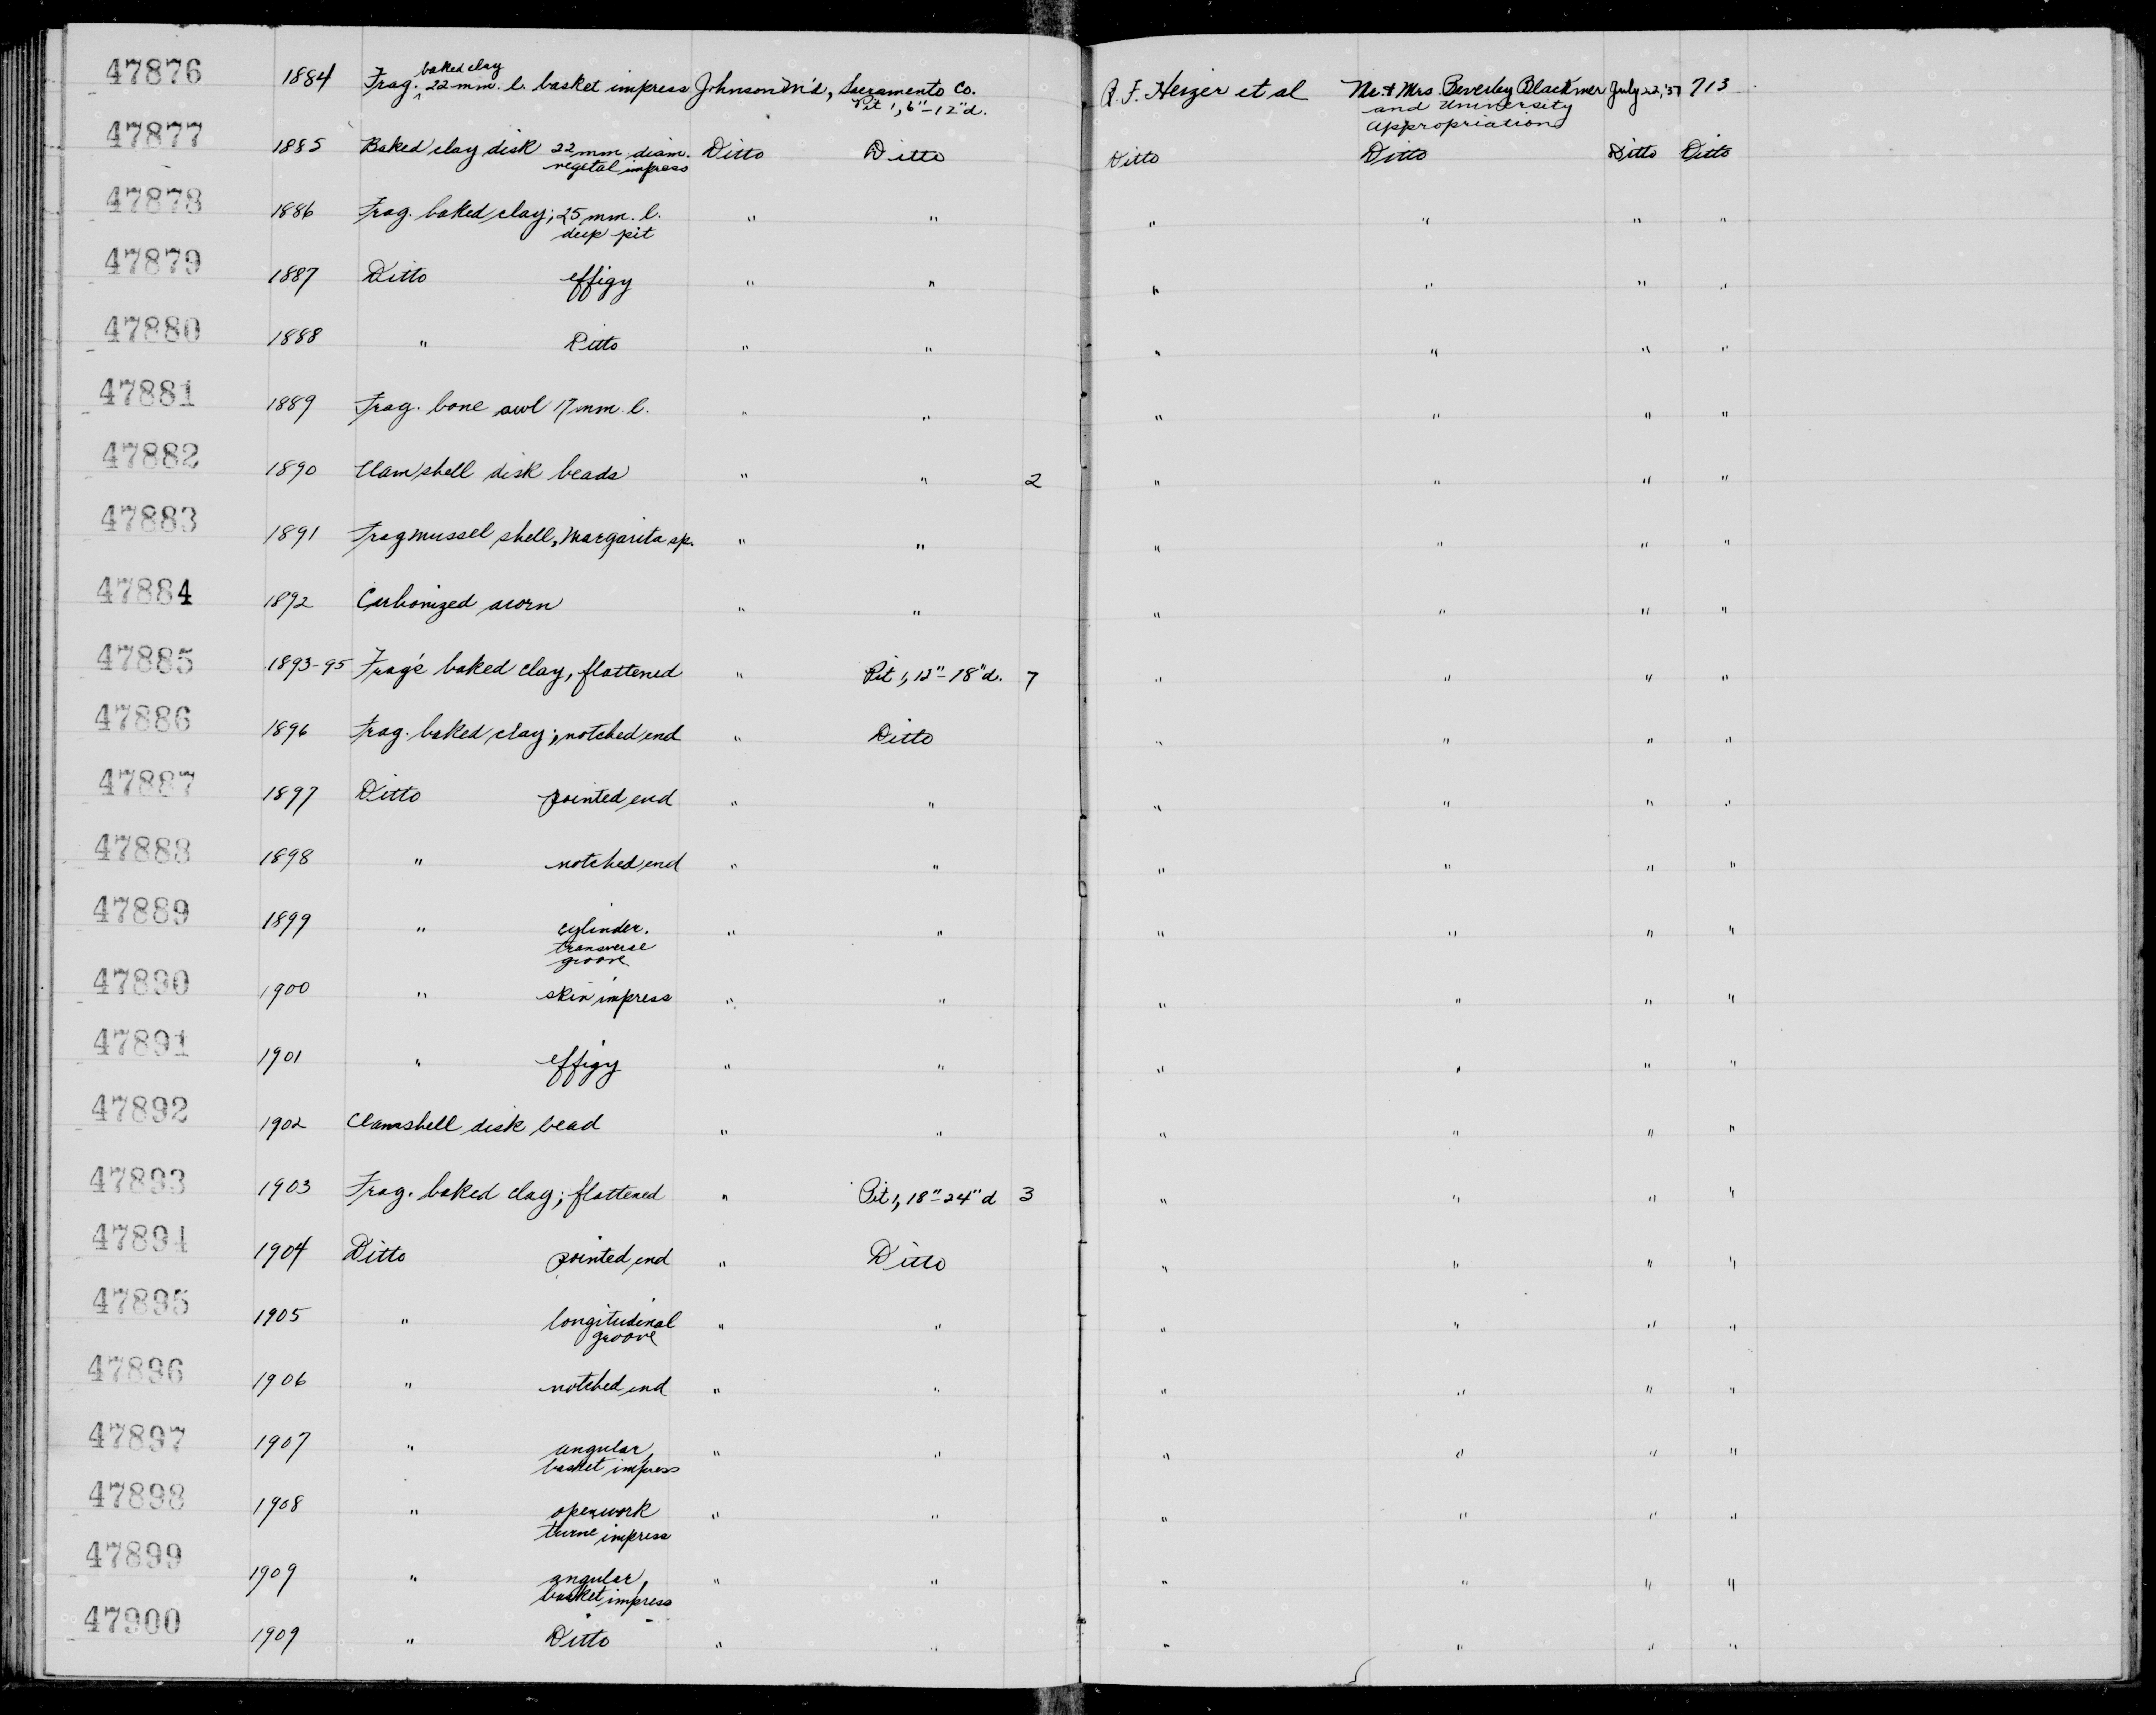 47876 1884 Frag. baked clay 22 mm. l. basket impress Johnson M'd, Sacramento Co. Pit 1, 6"-12"d. R. F. Heizer et al Mr. & Mrs. Beverley Blackmer and University Appropriation July 22, '37 713
47877 1885 Baked clay disk 22 mm diam. vegetal impress Ditto Ditto Ditto Ditto Ditto Ditto
47878 1886 Frag. baked clay; 25 mm. l. deep pit " " " " " "
47879 1887 Ditto effigy " " " " " "
47880 1888 " Ditto " " " " " "
47881 1889 Frag. bone awl 17 mm. l. " " " " " "
47882 1890 Clam shell disk beads " " 2 " " " "
47883 1891 Frag mussel shell, Margarita sp. " " " " " "
47884 1892 Carbonized acorn " " " " " "
47885 1893-95 Frag's baked clay, flattened " Pit 1, 12"-18"d. 7 " " " "
47886 1896 Frag. baked clay; notched end " Ditto " " " "
47887 1897 Ditto pointed end " " " " " "
47888 1898 " notched end " " " " " "
47889 1899 " cylinder. transverse groove " " " " " "
47890 1900 " skin impress " " " " " "
47891 1901 " effigy " " " " " "
47892 1902 Clamshell disk bead " " " " " "
47893 1903 Frag. baked clay; flattened " Pit 1, 18"-24"d 3 " " " "
47894 1904 Ditto pointed end " Ditto " " " "
47895 1905 " longitudinal groove " " " " " "
47896 1906 " notched end " " " " " "
47897 1907 " angular basket impress " " " " " "
47898 1908 " openwork twine impress " " " " " "
47899 1909 " angular basket impress " " " " " "
47900 1909 " Ditto " " " " " "